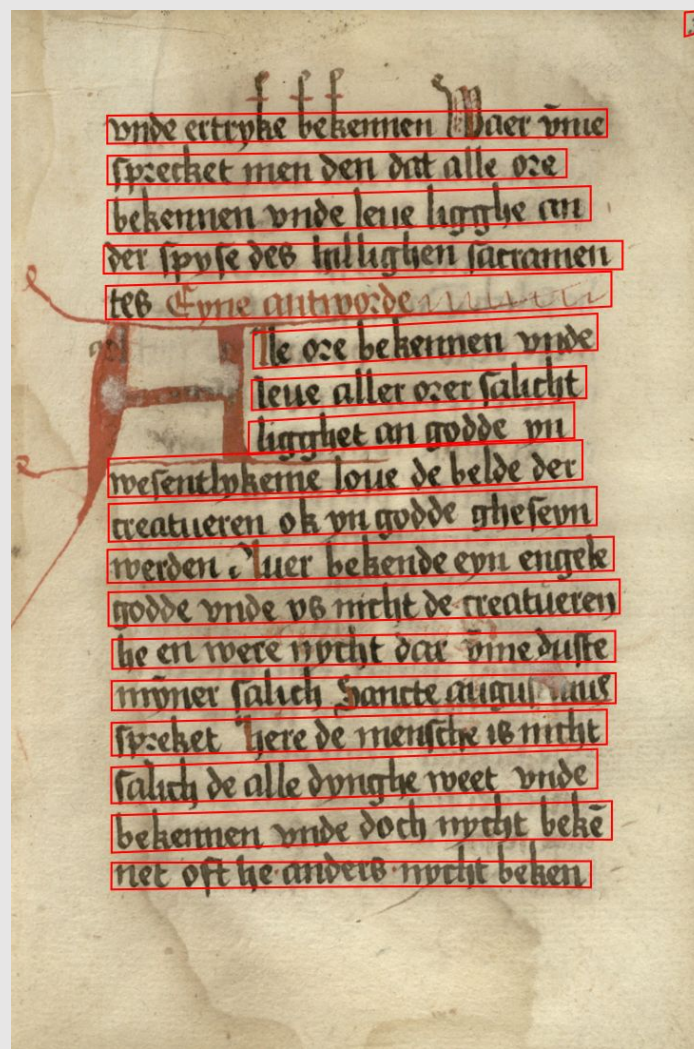 vnde ertryke bekennen Waer v̄me
sprecket men den dat alle ore
bekennen vnde leue ligghe an
der spyse des hillighen sacramen
tes Eyne antworde
Alle ore bekennen vnde
leue aller orer salicht
ligghet an godde yn
wesentlykeme loue de belde der
creatueren ok yn godde gheseyn
werden Auer bekende eyn engele
godde vnde vs nicht de creatueren
he en were nycht dar v̄me duste
myner salich Sancte augustinus
spreket here de mensche is nicht
salich de alle dynghe weet vnde
bekennen vnde doch nycht bekē
net oft he anders nycht beken